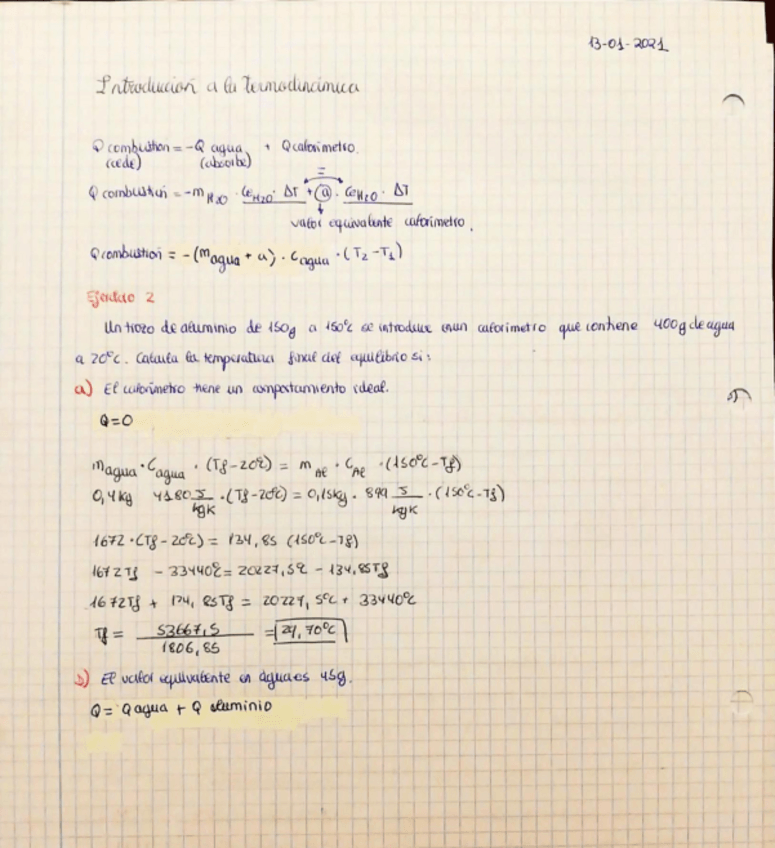 13-01-2021
Introducción a la termodinámica
Q combustion = -Q agua + Q calorímetro.
(cede) (absorbe)
=
Q combustion = -m H2O · Ce H2O · ΔT + (a) · Ce H2O · ΔT
valor equivalente calorímetro.
Q combustion = -(m agua + a) · c agua · (T2 - T1)
Ejercicio 2
Un trozo de aluminio de 150g a 150ºC se introduce en un calorímetro que contiene 400g de agua
a 20ºC. Calcula la temperatura final del equilibrio si:
a) El calorímetro tiene un comportamiento ideal.
Q=0
m agua · C agua · (Tf-20ºC) = m Al · C Al · (150ºC-Tf)
0,4 kg 4180 J/kgK · (Tf-20ºC) = 0,15kg · 899 J/kgK · (150ºC-Tf)
1672 · (Tf-20ºC) = 134,85 (150ºC-Tf)
1672Tf - 33440ºC = 20227,5ºC - 134,85Tf
1672Tf + 134,85Tf = 20227,5ºC + 33440ºC
Tf = 53667,5 / 1806,85 = 29,70ºC
b) El valor equivalente en agua es 45g.
Q = Q agua + Q aluminio